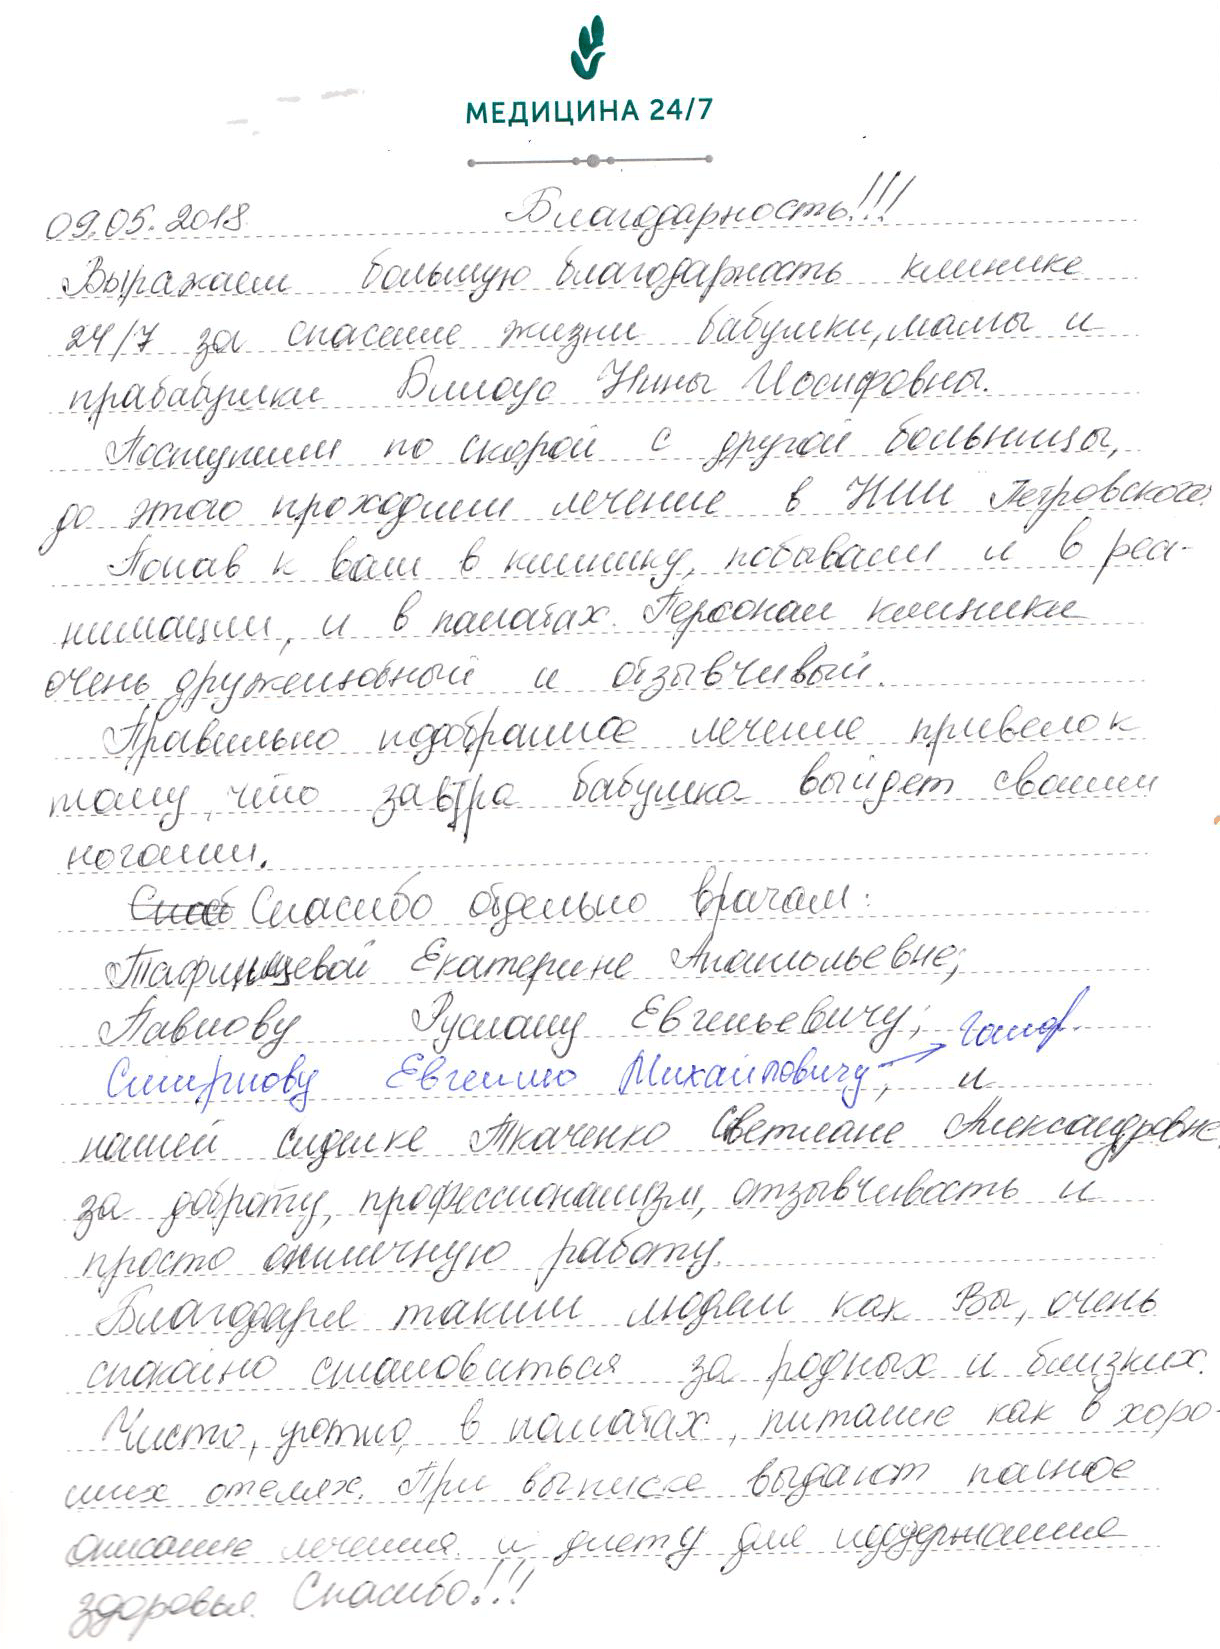 МЕДИЦИНА 24/7
09.05.2018 Благодарность!!!
Выражаем большую благодарность клинике
24/7 за спасение жизни бабушки, мамы и
прабабушки Нины Иосифовны.
Поступили по скорой с другой больницы,
до этого проходили лечение в НИИ Петровского.
Попав к вам в клинику, побывали и в реа-
нимации, и в палатах. Персонал клиники
очень дружелюбный и отзывчивый.
Правильно подобранное лечение привело к
тому, что завтра бабушка выйдет своими
ногами.
Спасиб Спасибо отдельно врачам:
Екатерине Анатольевне;
Павлову Руслану Евгеньевичу;
Смирнову Евгению Михайловичу; и
нашей сиделке Ткаченко Светлане Александровне
за доброту, профессионализм, отзывчивость и
просто отличную работу.
Благодаря таким людям как Вы, очень
спокойно становиться за родных и близких.
Чисто, уютно, в палатах, питание как в хоро-
ших отелях. При выписке выдают полное
описание лечения и диету для поддержания
здоровья. Спасибо!!!